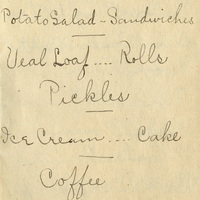 Potato Salad - Sandwiches
Veal Loaf.... Rolls
Pickles
Ice Cream.... Cake
Coffee